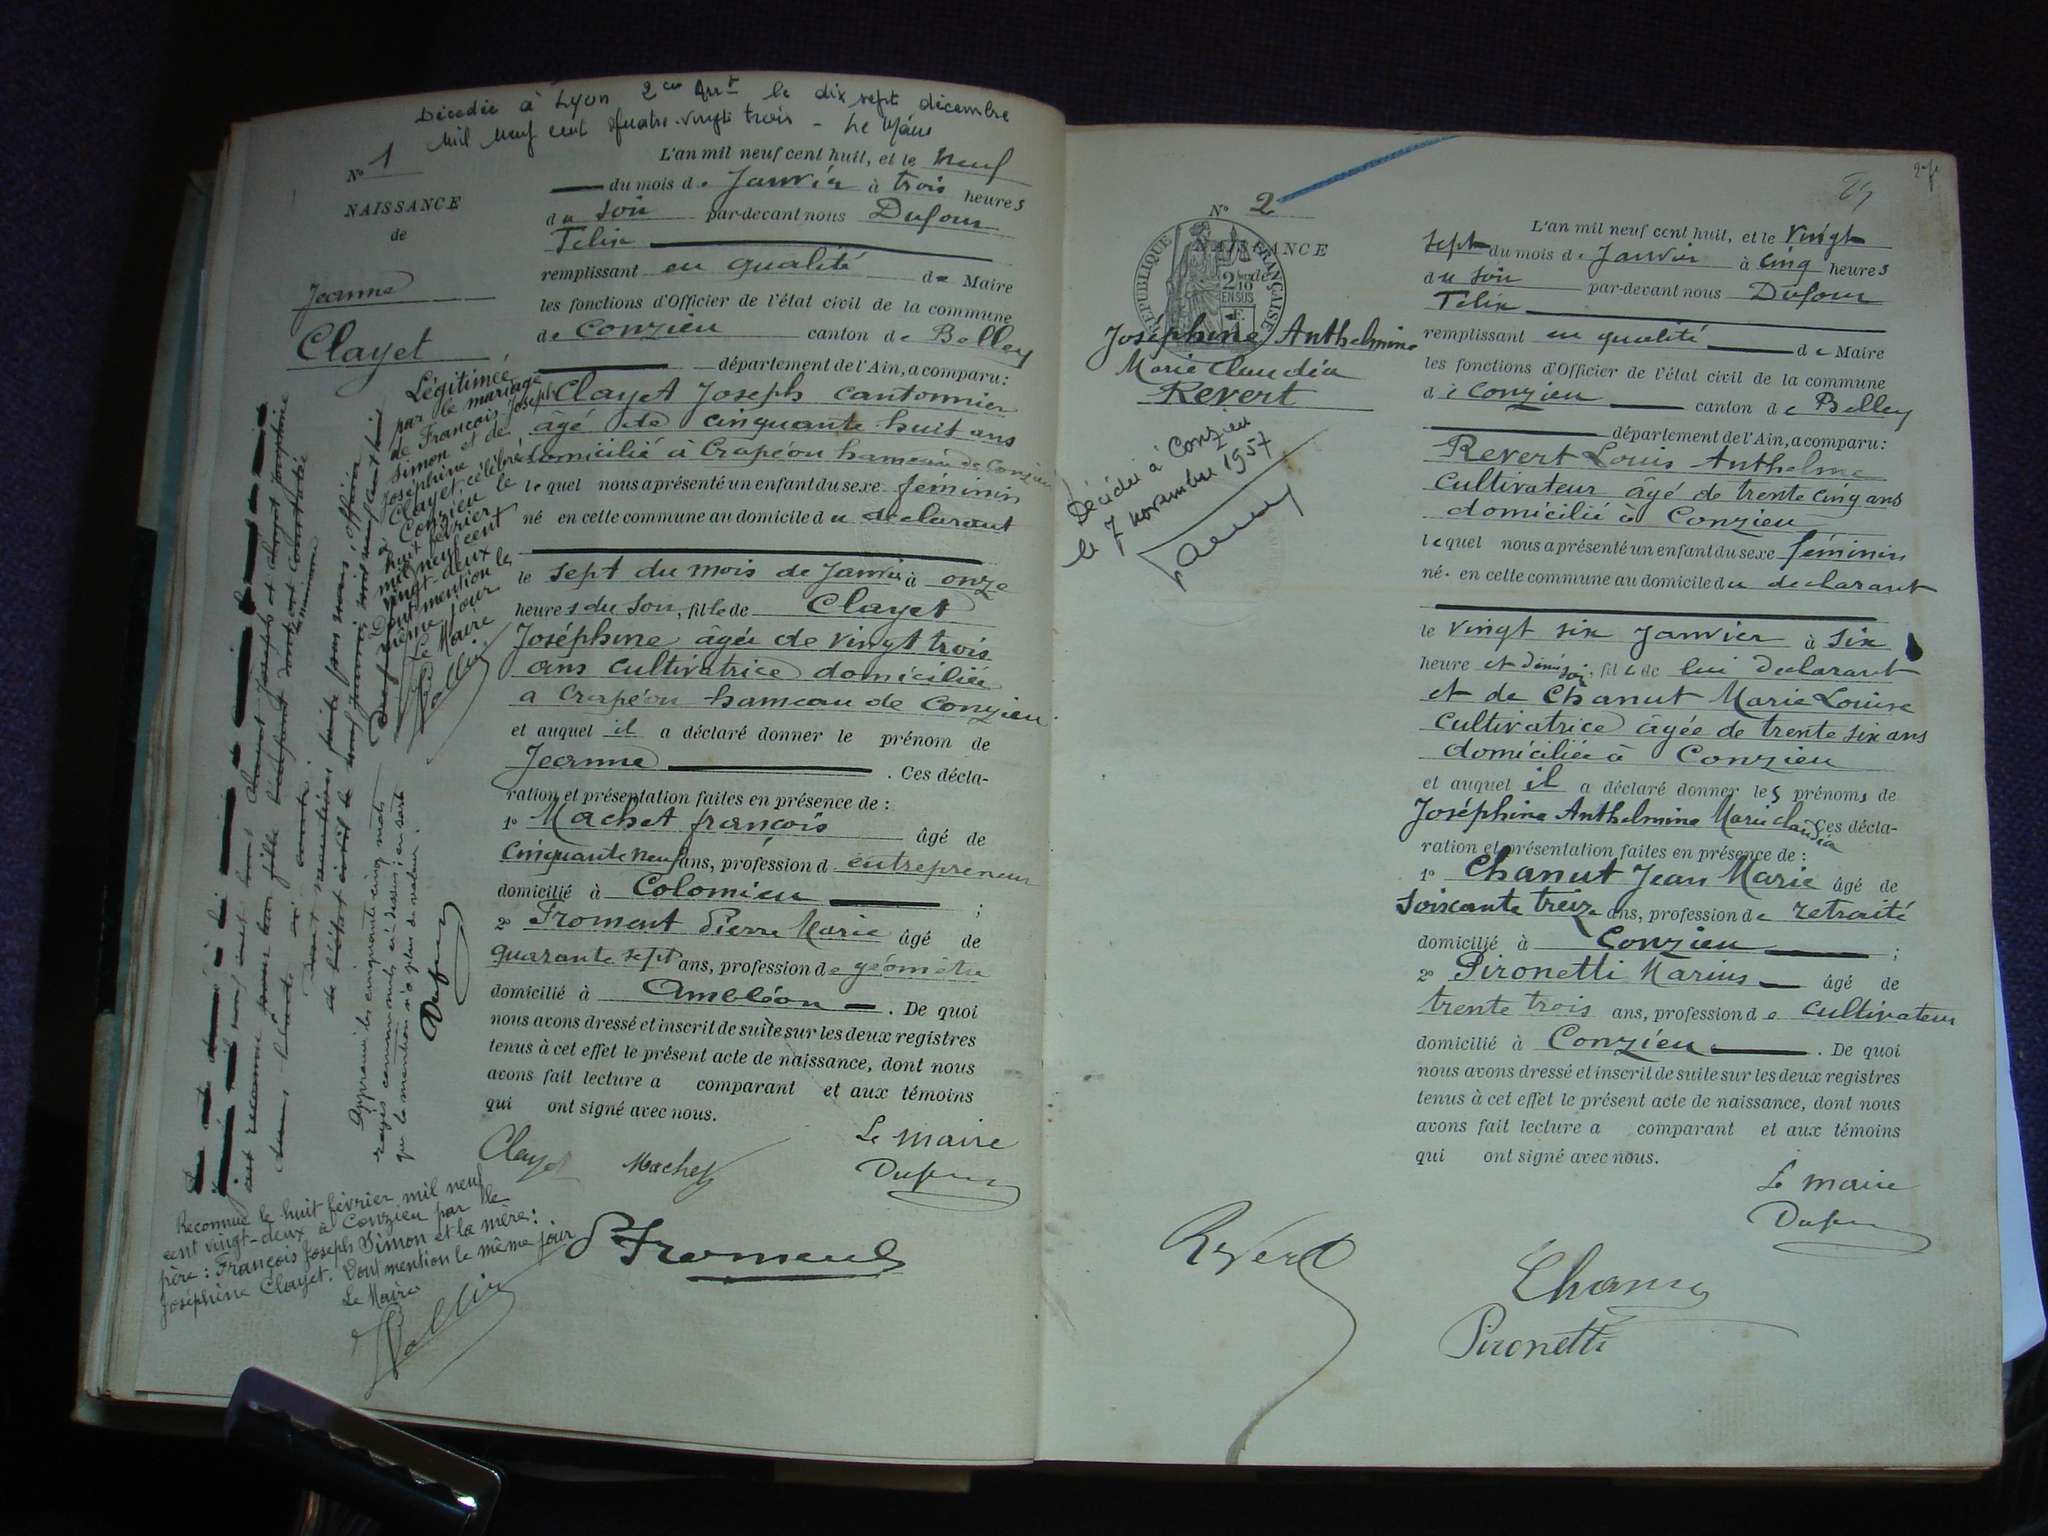 Décédée à Lyon 2e Arrt le dix sept décembre
mil neuf cent quatre-vingt trois - Le Maire
N° 1
NAISSANCE
de
Jeanne
Clayet
L'an mil neuf cent huit, et le neuf
du mois de Janvier à trois heures
du soir par-devant nous Dufour
Félix
remplissant en qualité de Maire
les fonctions d'Officier de l'état civil de la commune
de Conzieu canton de Belley
département de l'Ain, a comparu:
Clayet Joseph cantonnier
âgé de cinquante huit ans
domicilié à Crapéou hameau de Conzieu
lequel nous a présenté un enfant du sexe féminin
né en cette commune au domicile du déclarant
le sept du mois de Janvier à onze
heures du soir, fille de Clayet
Joséphine âgée de vingt trois
ans cultivatrice domiciliée
a Crapéou hameau de Conzieu
et auquel il a déclaré donner le prénom de
Jeanne . Ces décla-
ration et présentation faites en présence de :
1° Machet françois âgé de
Cinquante neuf ans, profession d entrepreneur
domicilié à Colomieu ;
2° Froment Pierre Marie âgé de
quarante sept ans, profession de géomètre
domicilié à Ambléon . De quoi
nous avons dressé et inscrit de suite sur les deux registres
tenus à cet effet le présent acte de naissance, dont nous
avons fait lecture a comparant et aux témoins
qui ont signé avec nous.
Le maire
Clayet Machet Dufour
P Froment
Légitimée
par le mariage
de François Joseph
Simon et de
Joséphine
Clayet célébré
à Conzieu le
huit février
mil neuf cent
vingt-deux
Dont mention le
même jour
Le Maire
Approuvé les cinquante cinq mots
rayés comme nuls ci-dessus en sorte
que la mention n'a plus de valeur.
Dufour
Reconnue le huit février mil neuf
cent vingt-deux à Conzieu par le
père : François Joseph Simon et la mère :
Joséphine Clayet. Dont mention le même jour
Le Maire
N° 2
NAISSANCE
RÉPUBLIQUE FRANÇAISE
2/10
EN SUS
Joséphine Anthelmine
Marie Claudia
Revert
Décédée à Conzieu
le 7 novembre 1957
L'an mil neuf cent huit, et le vingt
sept du mois de Janvier à cinq heures
du soir par-devant nous Dufour
Félix
remplissant en qualité de Maire
les fonctions d'Officier de l'état civil de la commune
de Conzieu canton de Belley
département de l'Ain, a comparu:
Revert Louis Anthelme
cultivateur âgé de trente cinq ans
domicilié à Conzieu
lequel nous a présenté un enfant du sexe féminin
né en cette commune au domicile du déclarant
le vingt six Janvier à six
heure et demi soir, fille de lui déclarant
et de Chanut Marie Louise
cultivatrice âgée de trente six ans
domiciliée à Conzieu
et auquel il a déclaré donner les prénoms de
Joséphine Anthelmine Marie Claudia Ces décla-
ration et présentation faites en présence de :
1° Chanut Jean Marie âgé de
soixante treize ans, profession de retraité
domicilié à Conzieu ;
2° Pironetti Marius âgé de
trente trois ans, profession de cultivateur
domicilié à Conzieu . De quoi
nous avons dressé et inscrit de suite sur les deux registres
tenus à cet effet le présent acte de naissance, dont nous
avons fait lecture a comparant et aux témoins
qui ont signé avec nous.
Le maire
Dufour
Revert
Chanut
Pironetti